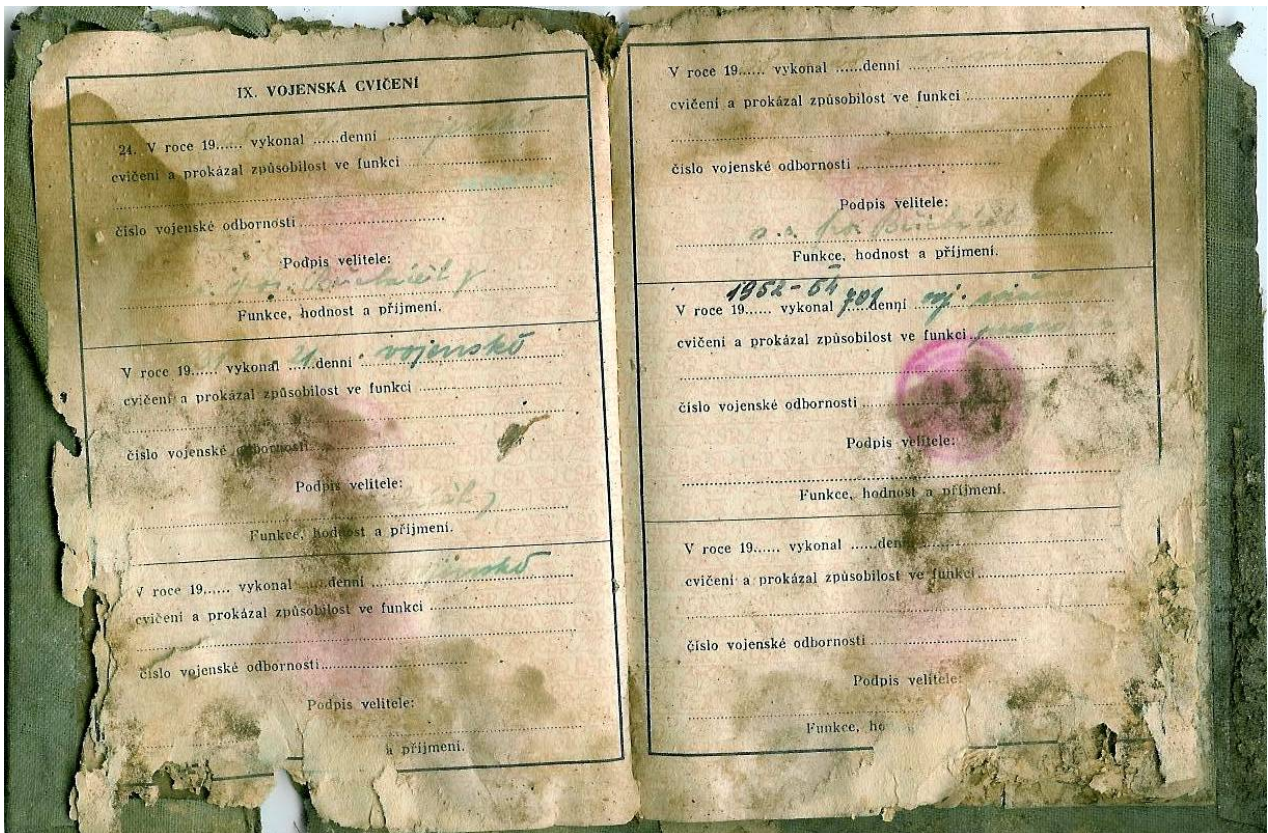 IX. VOJENSKÁ CVIČENÍ
24. V roce 19...... vykonal ......denní ........ vojenskó
cvičení a prokázal způsobilost ve funkci
číslo vojenské odbornosti
Podpis velitele:
Funkce, hodnost a příjmení.
V roce 19...... vykonal 21 denní vojenskó
cvičení a prokázal způsobilost ve funkci
číslo vojenské odbornosti
Podpis velitele:
Funkce, hodnost a příjmení.
V roce 19...... vykonal ......denní
cvičení a prokázal způsobilost ve funkci
číslo vojenské odbornosti
Podpis velitele:
a příjmení.
V roce 19...... vykonal ......denní
cvičení a prokázal způsobilost ve funkci
číslo vojenské odbornosti
Podpis velitele:
Funkce, hodnost a příjmení.
1952-54
V roce 19...... vykonal 701 denní voj.
cvičení a prokázal způsobilost ve funkci
číslo vojenské odbornosti
Podpis velitele:
Funkce, hodnost a příjmení.
V roce 19...... vykonal ......den
cvičení a prokázal způsobilost ve funkci
číslo vojenské odbornosti
Podpis velitele:
Funkce, ho